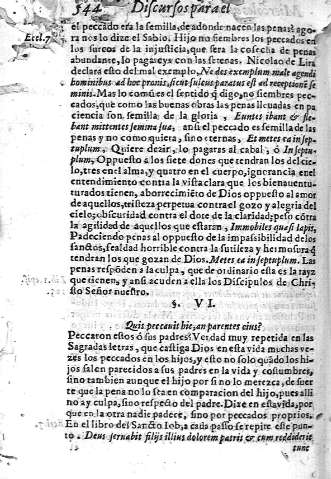 544 Discursos para el
el peccado era la semilla, de adonde nacen las penas: ago
Eccl. 7 ra nos lo dize el Sabio, Hijo no siembres los peccados en
los surcos de la injusticia, que sera la cosecha de penas
abundante, lo pagareys con las setenas. Nicolao de Lira
declara esto del mal exemplo, Ne des exemplum male agendi
hominibus ad hoc pronis, sicut sulcus paratus est ad receptionē se
minis. Mas lo comũ es el sentido q̃ digo, no siembres pec
cados, que como las buenas obras las penas lleuadas en pa
ciencia son semilla de la gloria, Euntes ibant & fle
bant mittentes semina sua, ansi el peccado es semilla de las
penas y no como quiera, sino eternas, Et metes ea in sep
tuplum, Quiere dezir, lo pagaras al cabal, ó In septu
plum, Oppuesto á los siete dones que tendran los del cie
lo, tres en el alma, y quatro en el cuerpo, ignorancia en el
entendimiento contra la vista clara que los bienauentu
turados tienen, aborrecimiẽto de Dios opuesto al amor
de aquellos, tristeza perpetua contra el gozo y alegria del
cielo; obscuridad contra el dote de la claridad; peso cõtra
la agilidad de aquellos que estaran, Immobiles quasi lapis,
Padeciendo penas al opuesto de la impasibilidad de los
sanctos, fealdad horrible contra la sutileza y hermosura q̃
tendran los que gozan de Dios. Metes ea in septuplum. Las
penas respõden a la culpa, que de ordinario esta es la rayz
que tienen, y ansi acuden a ella los Discipulos de Chri-
sto Señor nuestro.
§. VI.
Quis peccauit hic, an parentes eius?
Peccaron estos ó sus padres? Verdad muy repetida en las
Sagradas letras, que castiga Dios en esta vida muchas ve-
zes los peccados en los hijos, y esto no solo quãdo los hi-
jos salen parecidos a sus padres en la vida y costumbres,
sino tambien aunque el hijo por si no lo merezca, de suer
te que la pena no lo sea en comparacion del hijo, pues alli
no ay culpa, sino respecto del padre. Dixe en esta vida, por
que en la otra nadie padece, sino por peccados proprios.
En el libro del Sancto Iob, a cada passo se repite este pun-
to. Deus seruabit filijs illius dolorem patris & cum reddiderit
tunc